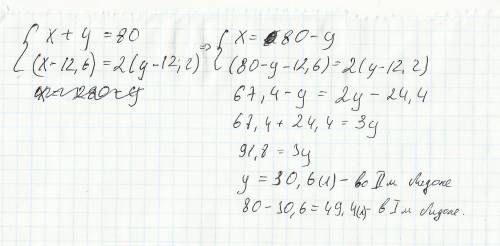 x + y = 80
(x-12,6) = 2(y-12,2)
⇒
x = 80-y
(80-y-12,6) = 2(y-12,2)
67,4 - y = 2y - 24,4
67,4 + 24,4 = 3y
91,8 = 3y
y = 30,6(л) - во II м бидоне
80 - 30,6 = 49,4(л) - в I м бидоне.